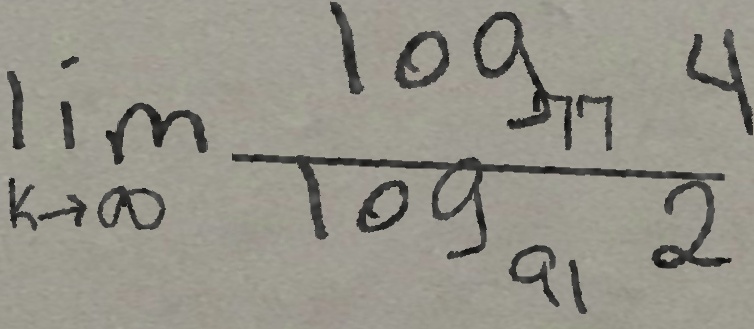 \lim_{k \to \infty} \frac{\log_{77} 4}{\log_{91} 2}